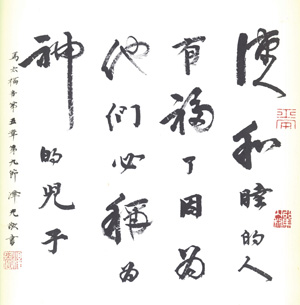 使人和睦的人
有福了因為
他們必稱為
神的兒子
馬太福音第五章第九節